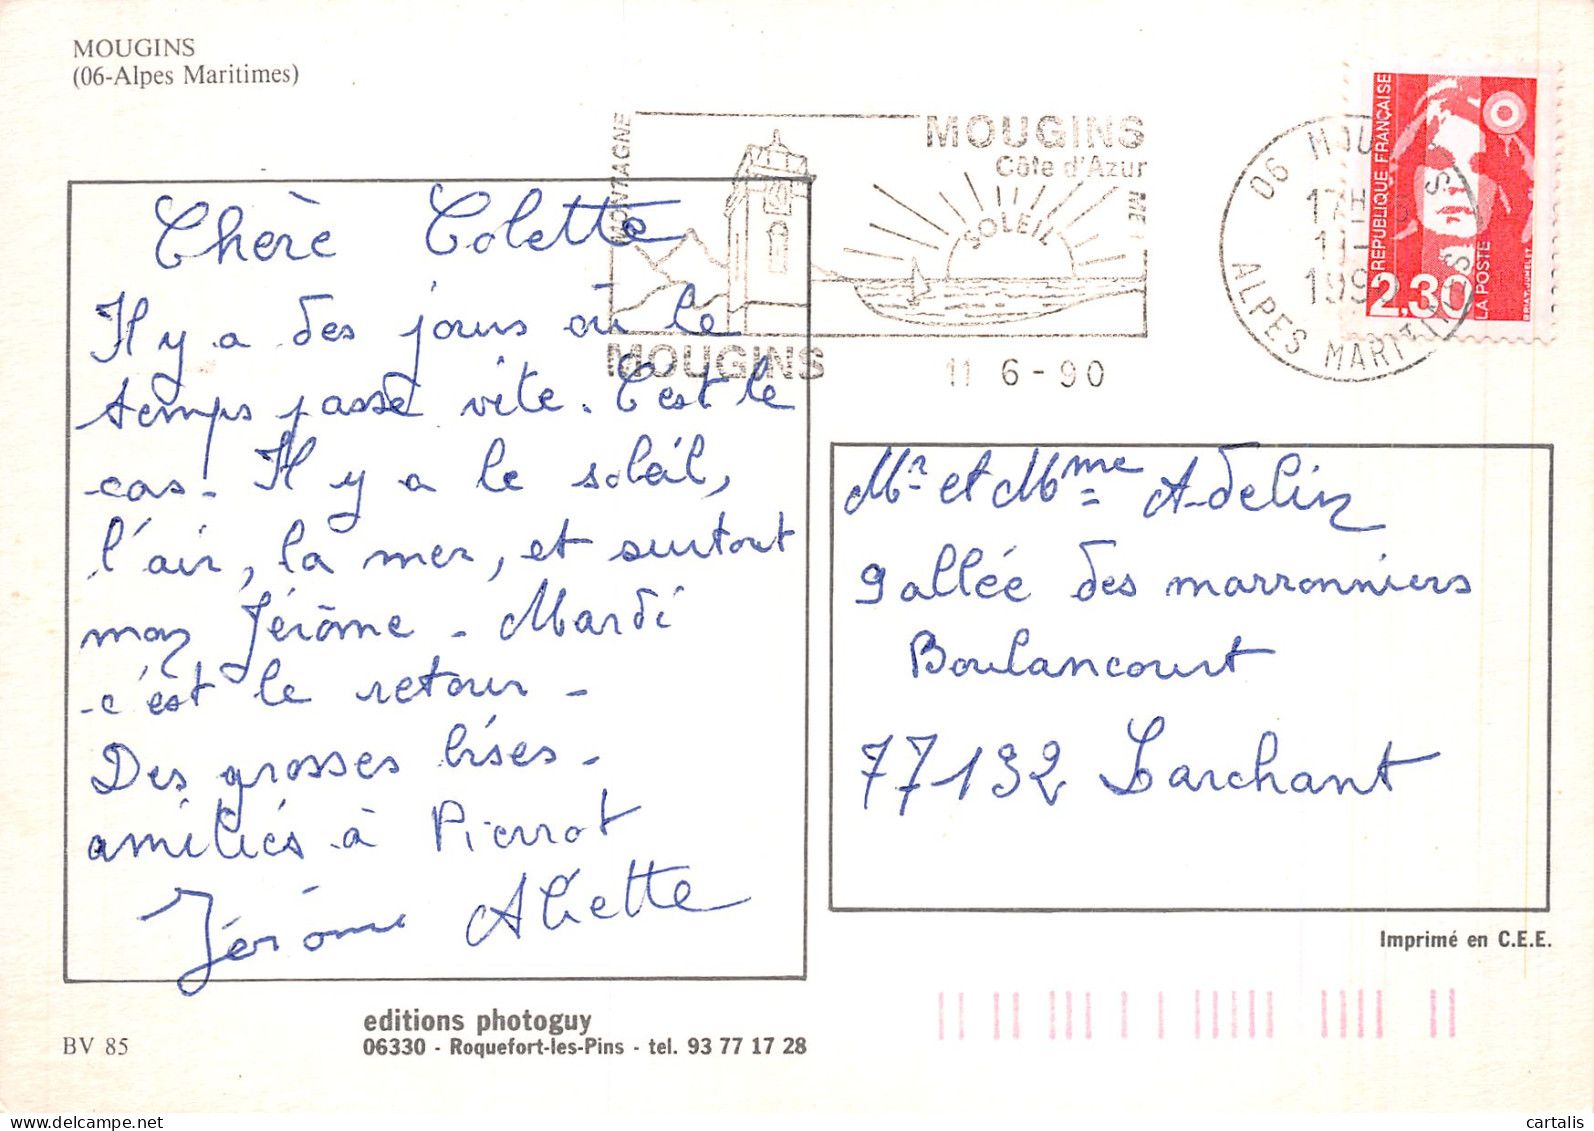 MOUGINS
(06-Alpes Maritimes)
MONTAGNE
MOUGINS
Côte d'Azur
SOLEIL
MOUGINS
11 6-90
06 MOUGINS
17H
11-
199
ALPES MARITIMES
REPUBLIQUE FRANÇAISE
2,30
LA POSTE
Chère Colette
Il y a des jours où le
temps passe vite. C'est le
cas! Il y a le soleil,
l'air, la mer, et surtout
mon Jérôme - Mardi
c'est le retour -
Des grosses bises -
amitiés à Pierrot
Jérôme Aliette
Mr et Mme Adelin
9 allée des marronniers
Boulancourt
77132 Larchant
Imprimé en C.E.E.
editions photoguy
06330 - Roquefort-les-Pins - tel. 93 77 17 28
BV 85
cartalis.com